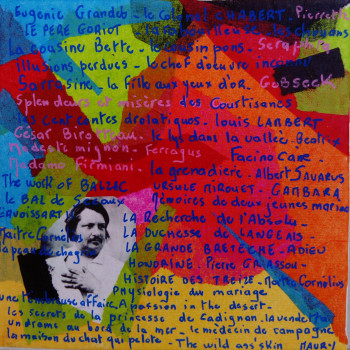 Eugenie Grandet - le Colonel CHABERT - Pierrette
LE PERE GORIOT - la rabouilleuse - les chouans
La cousine Bette - le cousin pons - Seraphita
Illusions perdues - le chef d'oeuvre inconnu
Sarrasine - la fille aux yeux d'or - GOBSECK
Splendeurs et misères des Courtisanes
les cent contes drolatiques - louis LAMBERT
César Birotteau - le lys dans la vallée - Beatrix
Modeste mignon - Ferragus Facino Cane
Madame Firmiani - la grenadière - Albert SAVARUS
The work of BALZAC URSULE MIROUET - GAMBARA
le BAL de Sceaux Mémoires de deux jeunes mariées
La Recherche de l'Absolu
Maitre Cornélius LA DUCHESSE DE LANGEAIS
la peau de chagrin LA GRANDE BRETECHE - ADIEU
HONORINE - Pierre GRASSOU
HISTOIRE DES TREIZE - Maitre Cornélius
Physiologie du mariage
une tenebreuse affaire - A passion in the desert
les secrets de la princesse de Cadignan - la vendetta
un drame au bord de la mer - le médecin de campagne
la maison du chat qui pelote - The wild ass' skin MAURY